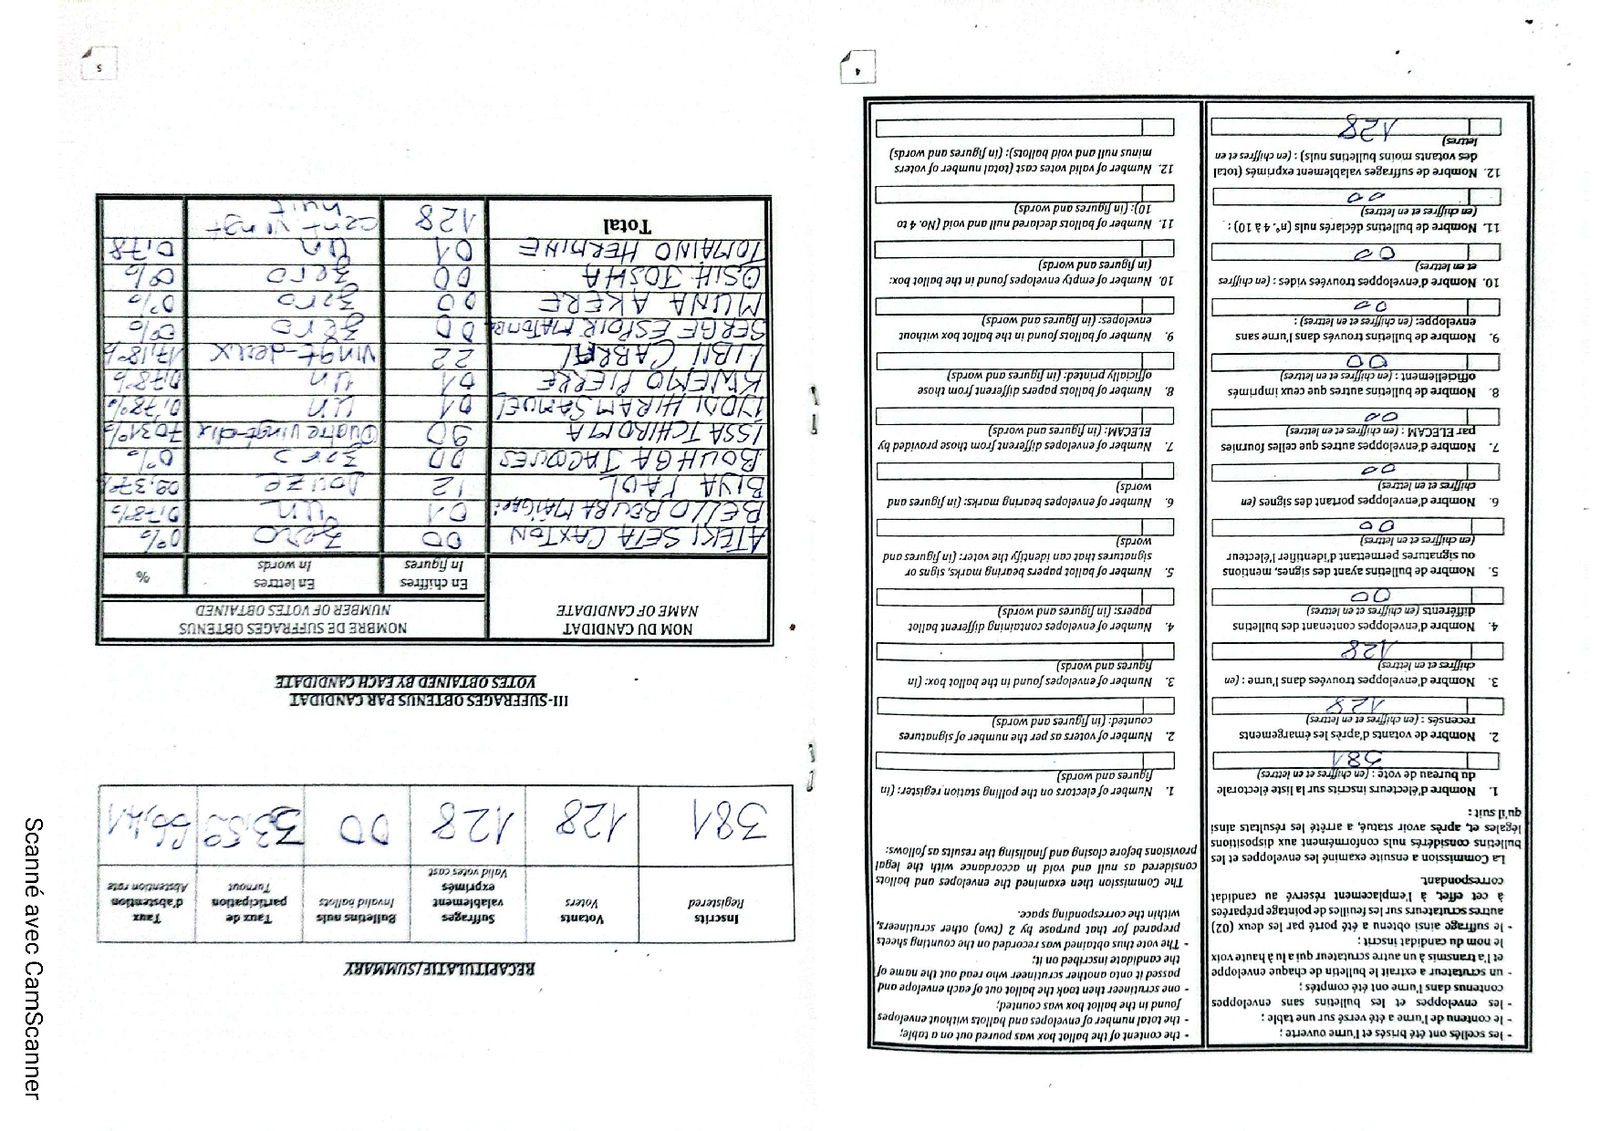 4
- les scellés ont été brisés et l'urne ouverte ;
- le contenu de l'urne a été versé sur une table ;
- les enveloppes et les bulletins sans enveloppes
contenus dans l'urne ont été comptés ;
- un scrutateur a extrait le bulletin de chaque enveloppe
et l'a transmis à un autre scrutateur qui a lu à haute voix
le nom du candidat inscrit ;
- le suffrage ainsi obtenu a été porté par les deux (02)
autres scrutateurs sur les feuilles de pointage préparées
à cet effet, à l'emplacement réservé au candidat
correspondant.
La Commission a ensuite examiné les enveloppes et les
bulletins considérés nuls conformément aux dispositions
légales et, après avoir statué, a arrêté les résultats ainsi
qu'il suit :
1. Nombre d'électeurs inscrits sur la liste électorale
du bureau de vote : (en chiffres et en lettres)
381
2. Nombre de votants d'après les émargements
recensés : (en chiffres et en lettres)
128
3. Nombre d'enveloppes trouvées dans l'urne : (en
chiffres et en lettres)
128
4. Nombre d'enveloppes contenant des bulletins
différents (en chiffres et en lettres)
00
5. Nombre de bulletins ayant des signes, mentions
ou signatures permettant d'identifier l'électeur
(en chiffres et en lettres)
00
6. Nombre d'enveloppes portant des signes (en
chiffres et en lettres)
00
7. Nombre d'enveloppes autres que celles fournies
par ELECAM : (en chiffres et en lettres)
00
8. Nombre de bulletins autres que ceux imprimés
officiellement : (en chiffres et en lettres)
00
9. Nombre de bulletins trouvés dans l'urne sans
enveloppe: (en chiffres et en lettres) :
00
10. Nombre d'enveloppes trouvées vides : (en chiffres
et en lettres)
00
11. Nombre de bulletins déclarés nuls (n°. 4 à 10) :
(en chiffres et en lettres)
00
12. Nombre de suffrages valablement exprimés (total
des votants moins bulletins nuls) : (en chiffres et en
lettres)
128
- the content of the ballot box was poured out on a table;
- the total number of envelopes and ballots without envelopes
found in the ballot box was counted;
- one scrutineer then took the ballot out of each envelope and
passed it onto another scrutineer who read out the name of
the candidate inscribed on it;
- The vote thus obtained was recorded on the counting sheets
prepared for that purpose by 2 (two) other scrutineers,
within the corresponding space.
The Commission then examined the envelopes and ballots
considered as null and void in accordance with the legal
provisions before closing and finalising the results as follows:
1. Number of electors on the polling station register: (in
figures and words)
2. Number of voters as per the number of signatures
counted: (in figures and words)
3. Number of envelopes found in the ballot box: (in
figures and words)
4. Number of envelopes containing different ballot
papers: (in figures and words)
5. Number of ballot papers bearing marks, signs or
signatures that can identify the voter: (in figures and
words)
6. Number of envelopes bearing marks: (in figures and
words)
7. Number of envelopes different from those provided by
ELECAM: (in figures and words)
8. Number of ballots papers different from those
officially printed: (in figures and words)
9. Number of ballots found in the ballot box without
envelopes: (in figures and words)
10. Number of empty envelopes found in the ballot box:
(in figures and words)
11. Number of ballots declared null and void (No. 4 to
10): (in figures and words)
12. Number of valid votes cast (total number of voters
minus null and void ballots): (in figures and words)
5
RECAPITULATIF/SUMMARY
Inscrits Registered | Votants Voters | Suffrages valablement exprimés Valid votes cast | Bulletins nuls Invalid ballots | Taux de participation Turnout | Taux d'abstention Abstention rate
381 | 128 | 128 | 00 | 33,59 | 66,41
III-SUFFRAGES OBTENUS PAR CANDIDAT
VOTES OBTAINED BY EACH CANDIDATE
NOM DU CANDIDAT NAME OF CANDIDATE | NOMBRE DE SUFFRAGES OBTENUS NUMBER OF VOTES OBTAINED
En chiffres In figures | En lettres In words | %
ATEKI SETA CAXTON 00 zero 0%
BELLO BOUBA MAÏGARI 01 un 0,78%
BIYA PAUL 12 Douze 09,37%
BOUHGA JACQUES 00 zero 0%
ISSA TCHIROMA 90 Quatre vingt-dix 70,31%
IYODI HIRAM SAMUEL 01 un 0,78%
KWEMO PIERRE 01 un 0,78%
LIBII CABRAL 22 vingt-deux 17,18%
SERGE ESPOIR MATOMBA 00 zero 0%
MUNA AKERE 00 zero 0%
OSIH JOSHA 00 zero 0%
TOMAINO HERMINE 01 un 0,78
Total 128 cent vingt
huit
Scanné avec CamScanner